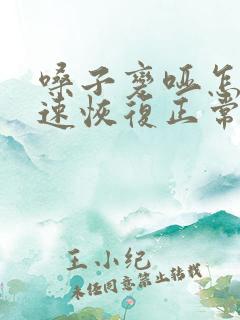 嗓子变哑怎
速恢復正常
王小纪
未经同意禁止转载